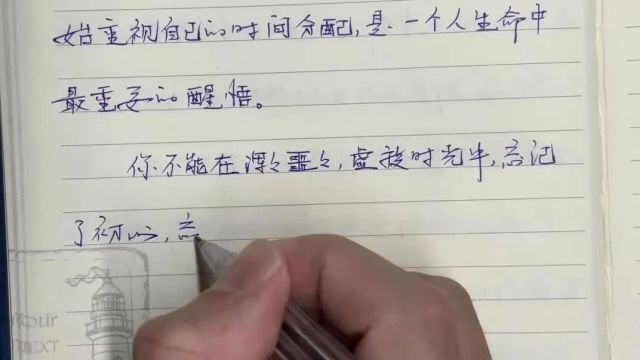 始重视自己的时间分配,是一个人生命中
最重要的醒悟。
你不能在浑浑噩噩,虚投时光中,忘记
了初心,忘
YOUR
TEXT